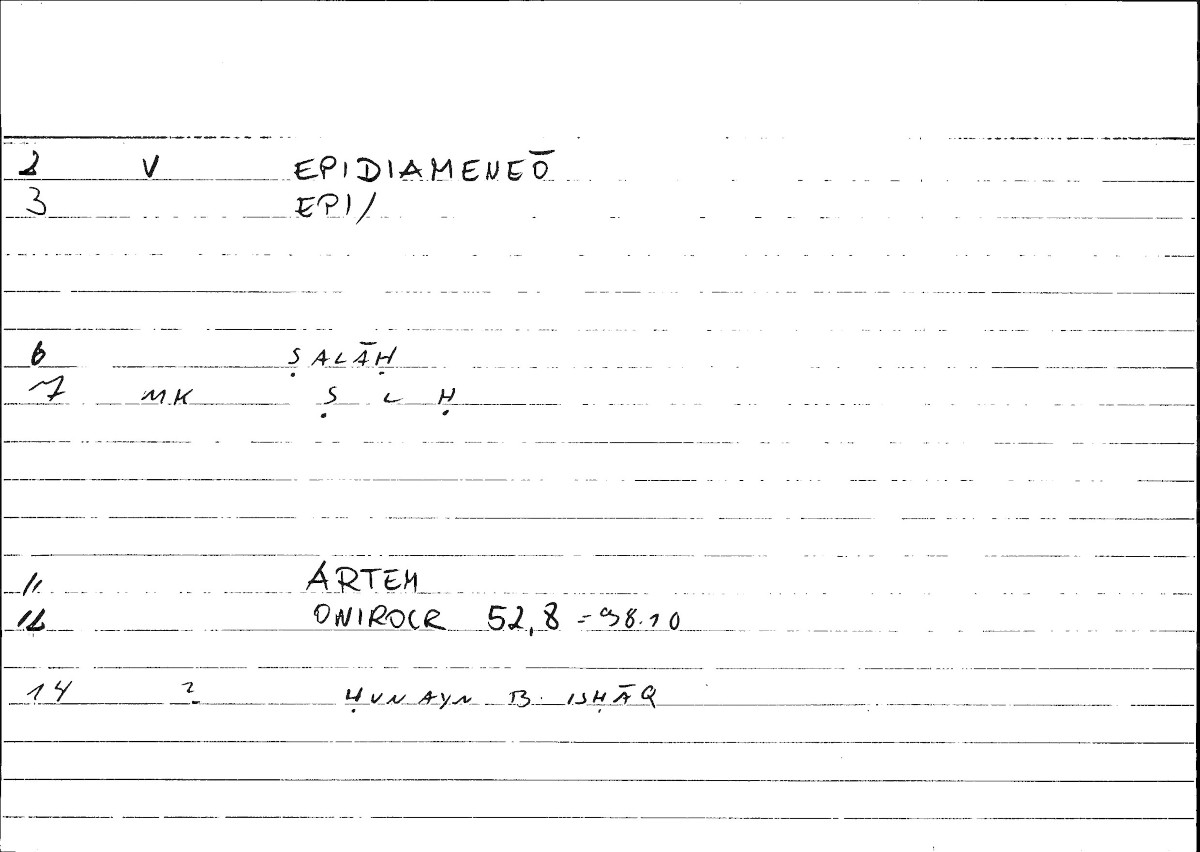 2 V EPIDIAMENEŌ
3 EPI/
6 ṢALĀḤ
7 MK Ṣ L Ḥ
11 ARTEM
12 ONIROCR 52,8 = 98.10
14 ? ḤUNAYN B. ISḤĀQ